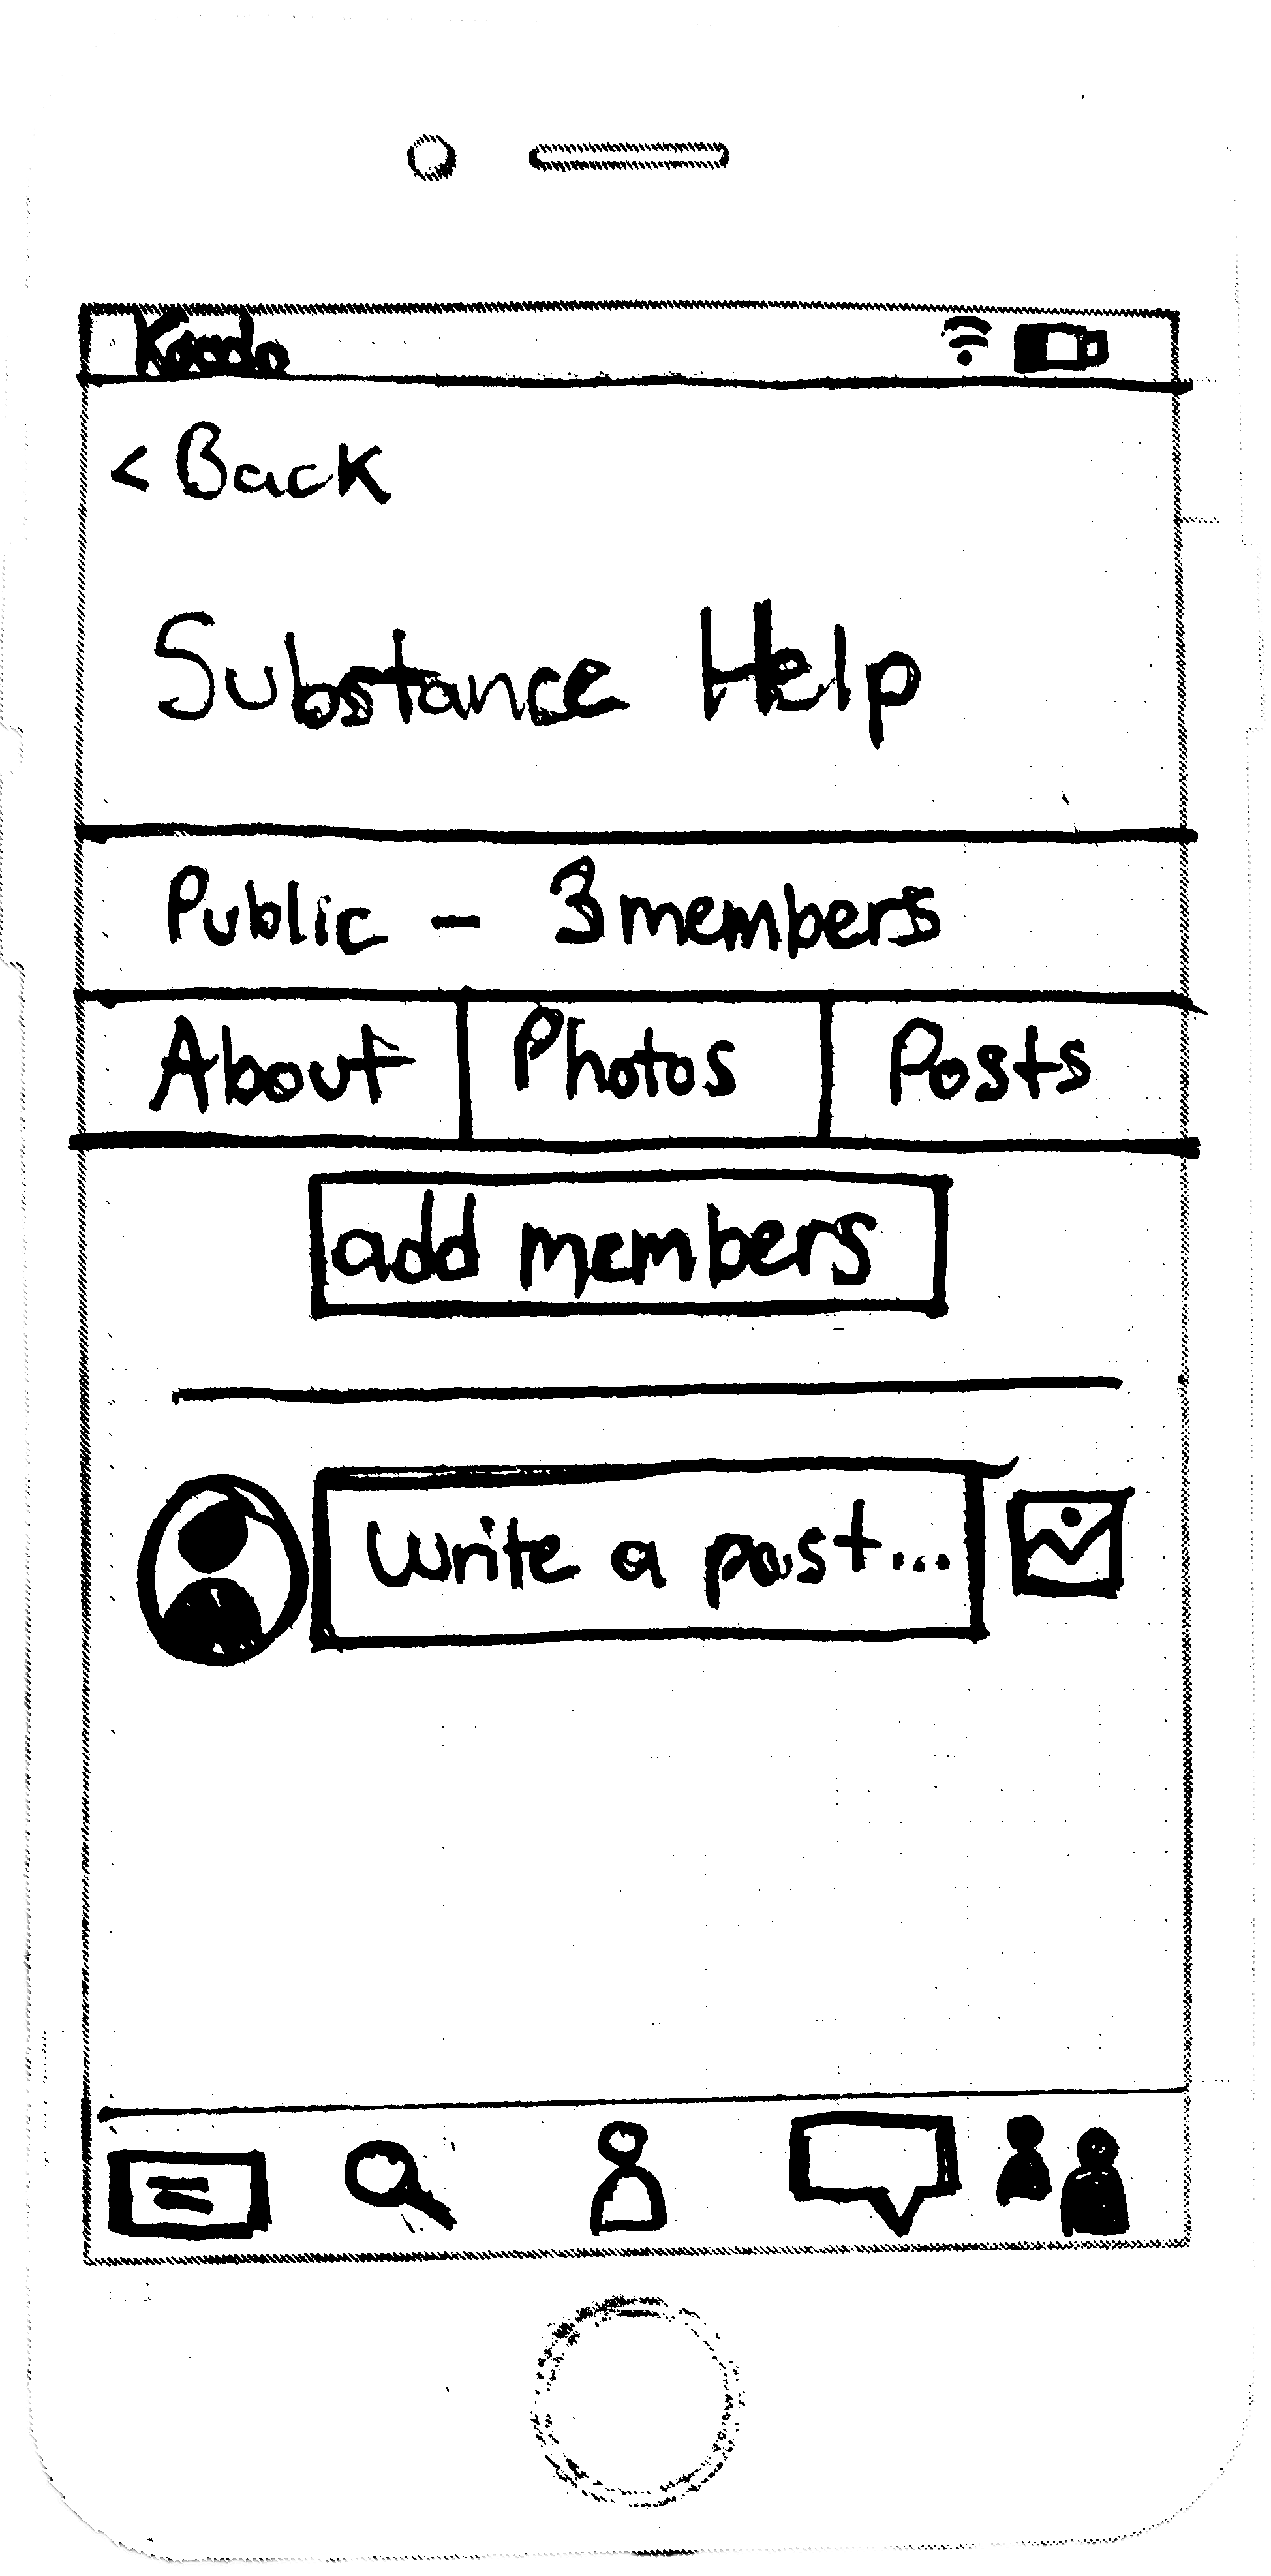 < Back
Substance Help
Public - 3 members
About Photos Posts
add members
write a post...